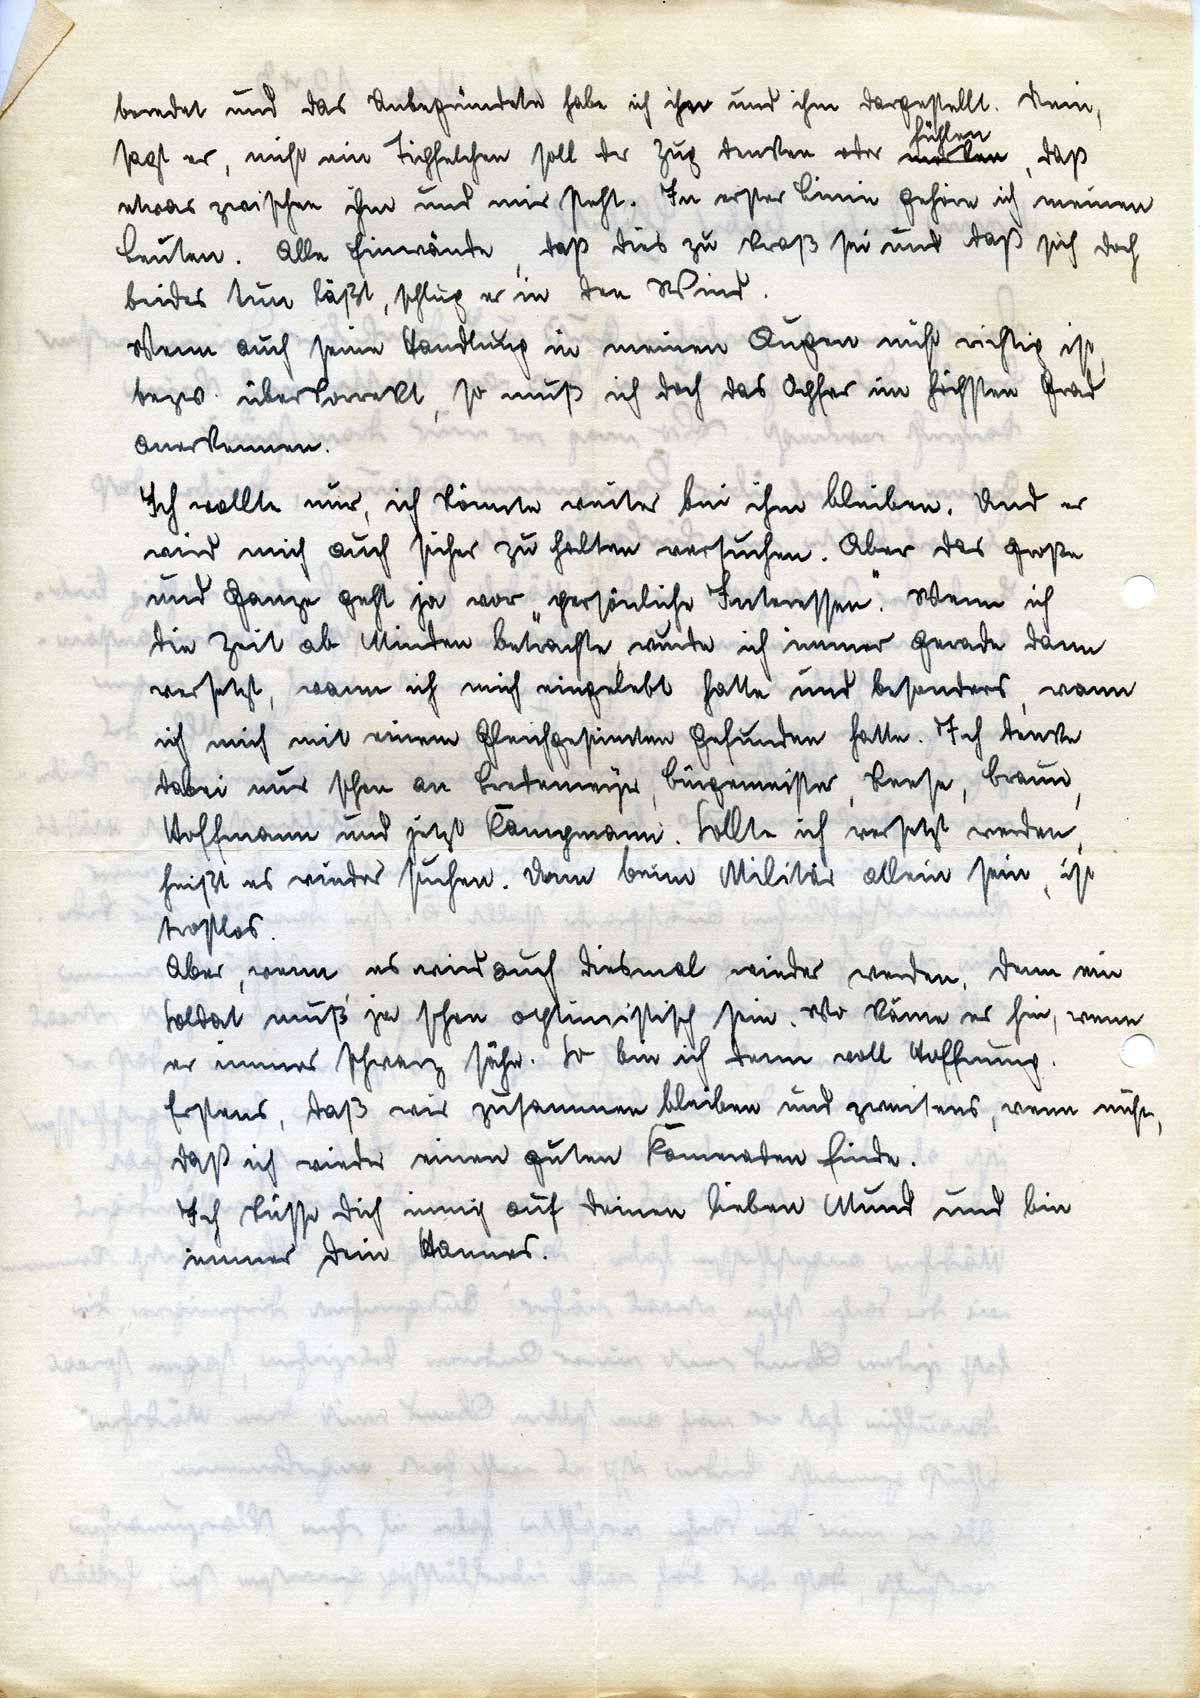 beredet und das Unbegründete habe ich ihr und ihm dargestellt. Nein,
sagt er, nicht ein Tüpfelchen soll der Zug denken oder fühlen, daß
etwas zwischen ihm und mir steht. In erster Linie gehöre ich meinen
Leuten. Alle Einwände, daß dies zu kraß sei und daß sich doch
beides tun läßt, schlug er in den Wind.
Wenn auch seine Handlung in meinen Augen nicht richtig ist,
bezw. überkorrekt, so muß ich doch das Opfer im höchsten Grad
anerkennen.
Ich wollte nur, ich könnte weiter bei ihm bleiben. Und er
wird mich auch sicher zu halten versuchen. Aber das große
und Ganze geht ja vor „persönliche Interessen“. Wenn ich
die Zeit ab Minden betrachte, wurde ich immer gerade dann
versetzt, wann ich mich eingelebt hatte und besonders, wann
ich mich mit einem Gleichgesinnten gefunden hatte. Ich denke
dabei nur schon an Bredemeyer, Bürgemeister, Keese, Braun,
Hoffmann und jetzt Kampmann. Sollte ich versetzt werden,
heißt es wieder suchen. Denn beim Militär allein sein, ist
trostlos.
Aber, wenn, es wird auch diesmal wieder werden, denn ein
Soldat muß ja schon optimistisch sein. Wo käme er hin, wenn
er immer schwarz sähe. So bin ich denn voll Hoffnung.
Erstens, daß wir zusammen bleiben und zweitens, wenn nicht,
daß ich wieder einen guten Kameraden finde.
Ich küsse Dich innig auf Deinen lieben Mund und bin
immer Dein Hannes.